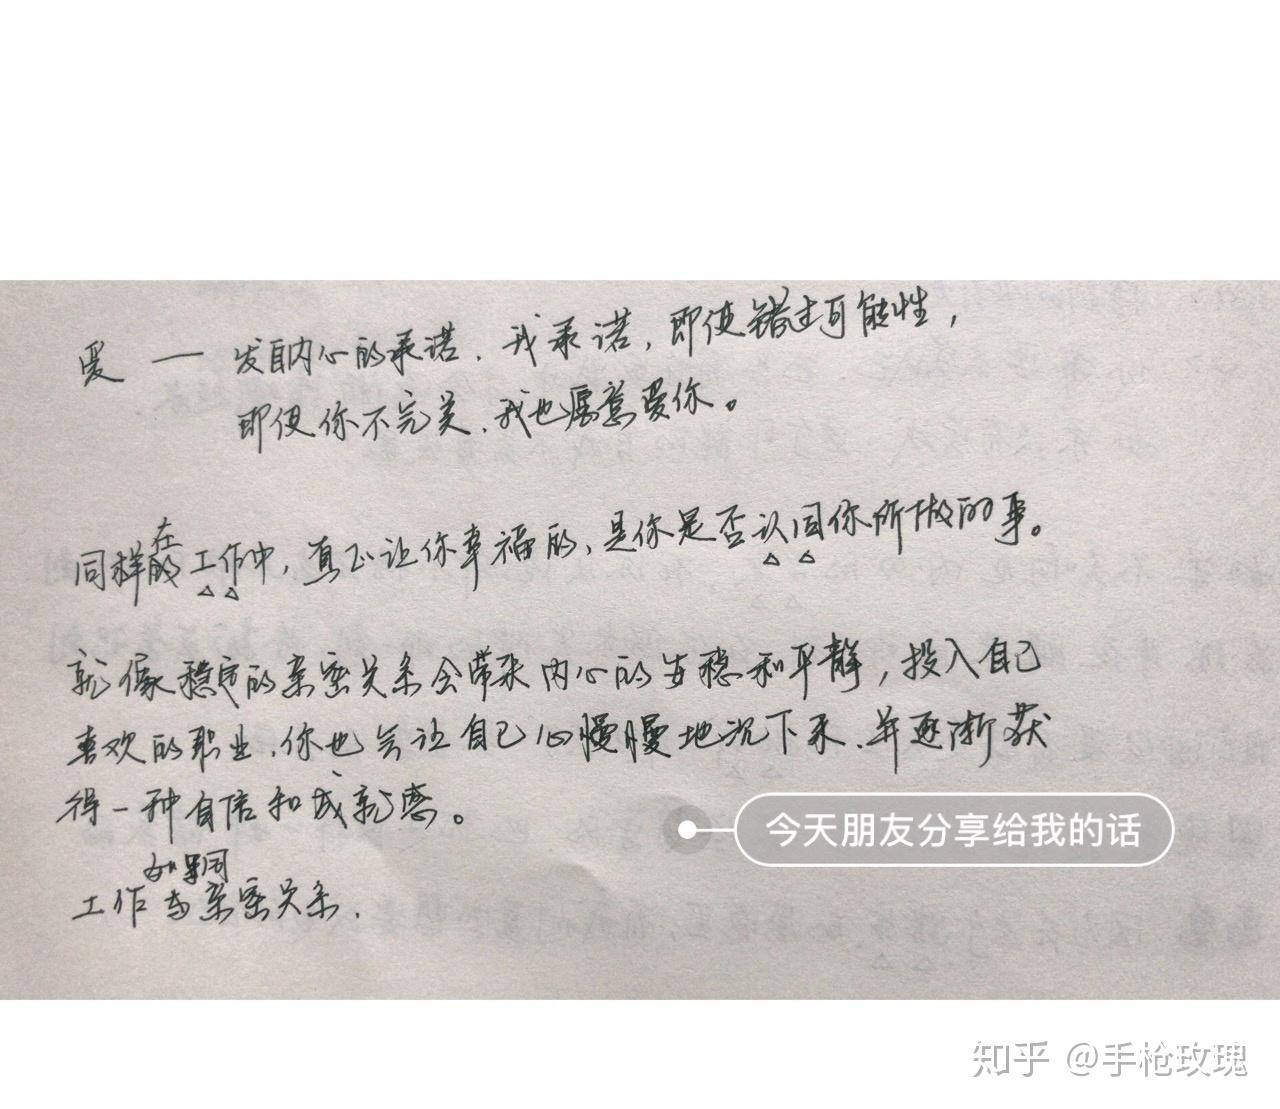 爱 — 发自内心的承诺．我承诺，即使错过可能性，
即使你不完美．我也愿意爱你。
在
同样的工作中，真正让你幸福的，是你是否认同你所做的事。
就像稳定的亲密关系会带来内心的安稳和平静，投入自己
喜欢的职业．你也会让自己心慢慢地沉下来．并逐渐获
得一种自信和成就感。
今天朋友分享给我的话
如果同
工作与亲密关系．
知乎 @手枪玫瑰